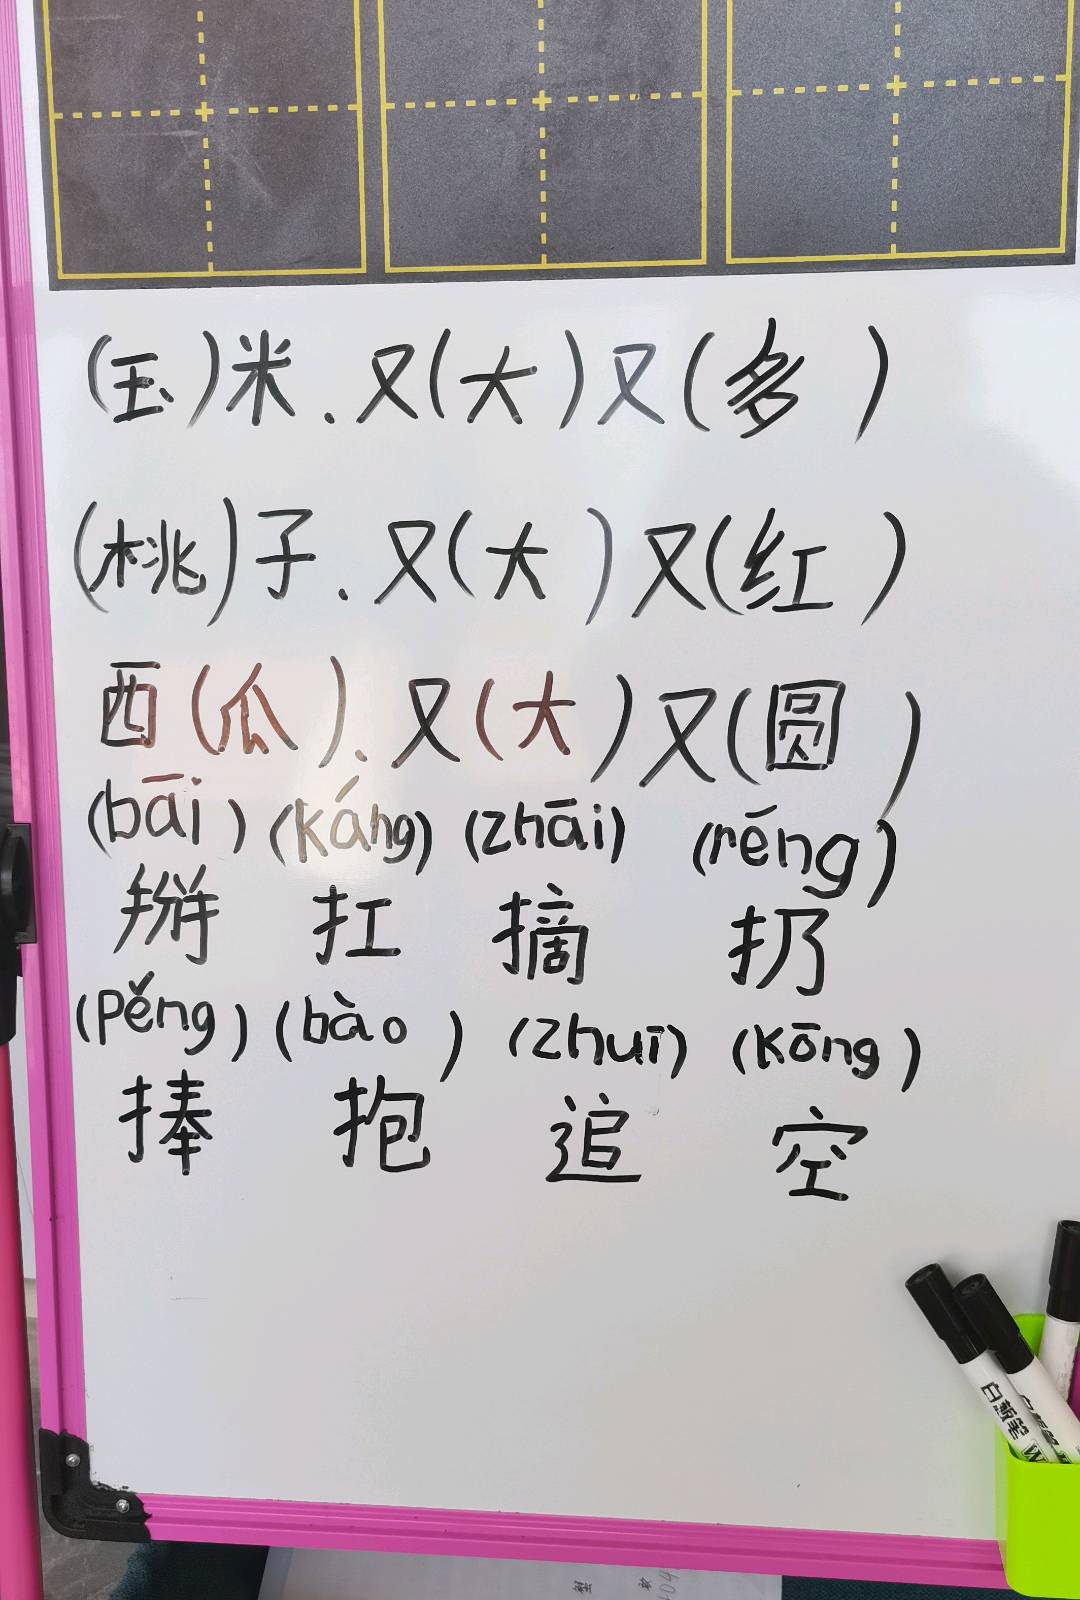 (玉)米.又(大)又(多)
(桃)子.又(大)又(红)
西(瓜).又(大)又(圆)
(bāi) (káng) (zhāi) (rēng)
掰 扛 摘 扔
(pěng) (bào) (zhuī) (kōng)
捧 抱 追 空
白板笔 W